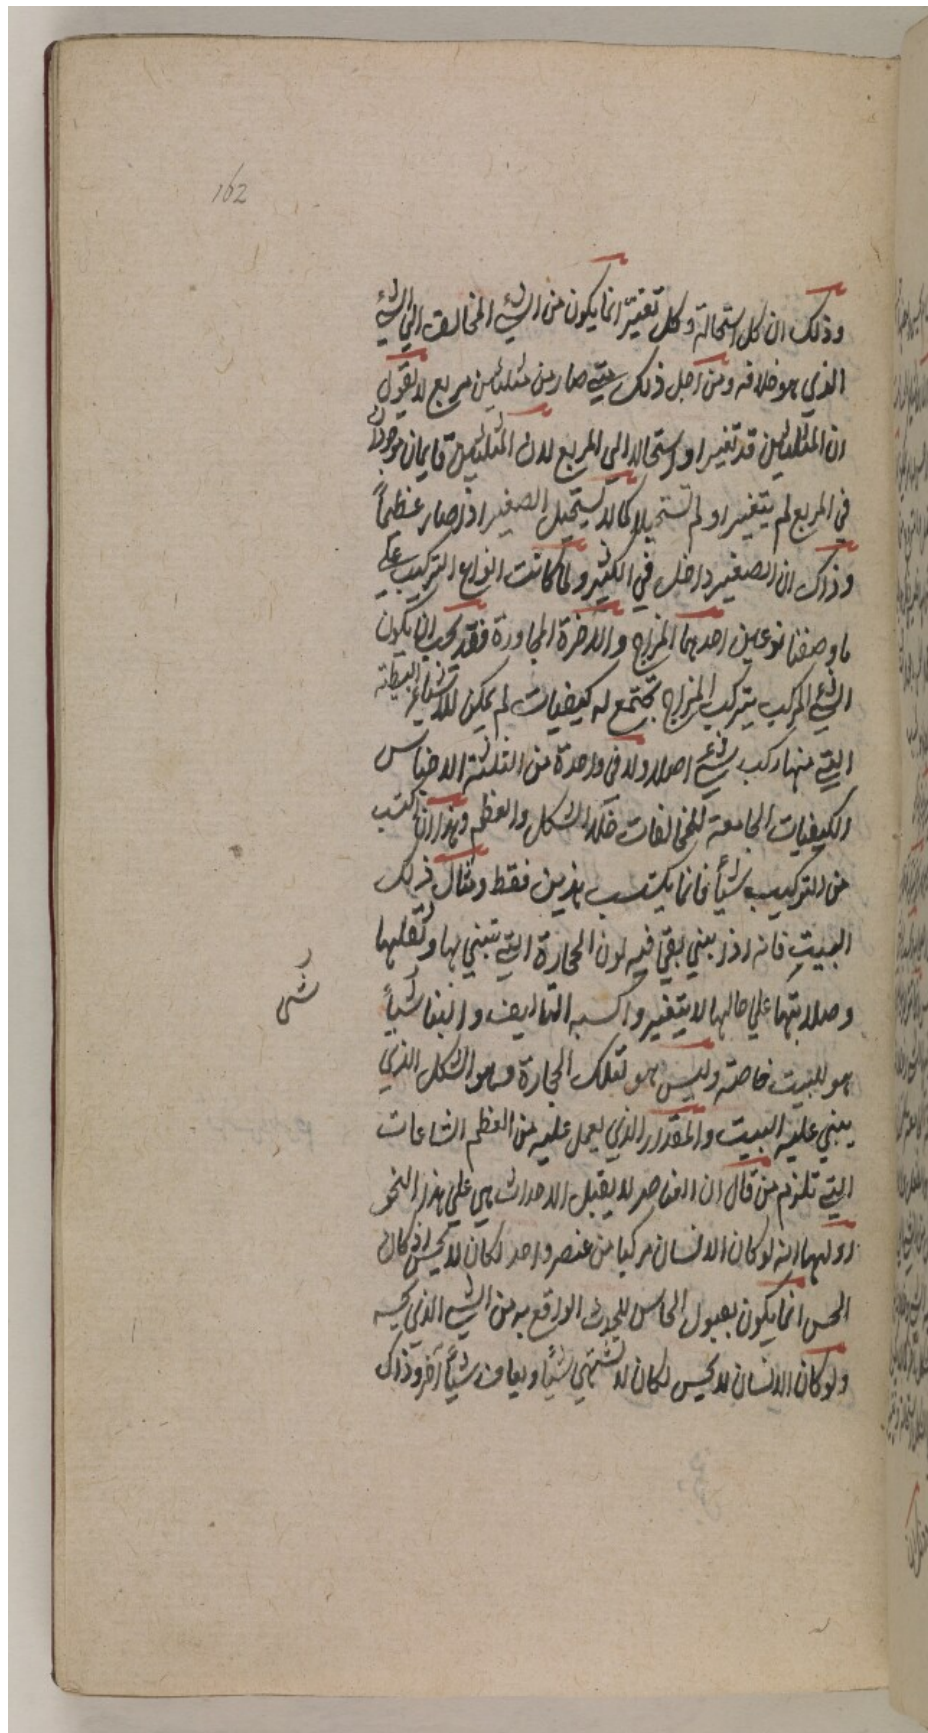 162
وذلك ان كل استحالة وكل تغير انما يكون من الشيء المخالف الي الشيء
الذي هو خلافه ومن اجل ذلك متي صار من مثلثين مربع لا يقول
ان المثلثين قد تغيرا او استحالا الي المربع لان المثلثين قايمان موجودان
في المربع لم يتغيرا ولم تستحيلا كما لا يستحيل الصغير اذا صار عظيماً
وذاك ان الصغير داخل في الكثير ولما كانت انواع التركيب علي
ما وصفنا نوعين احدهما المزاج والاخرة المجاورة فقد يجب ان يكون
الشيء المركب بتركيب المزاج تجتمع له كيفيات لم يكن للاشياء البسيطة
التي منها ركب شيء اصلا ولا في واحدة من الثلثة الاجناس
الكيفيات الجامعة للمخالفات خلا الشكل والعظم وهذا ان اكتسب
من التركيب شيأً فانما يكتسب هذين فقط ومثال ذلك
البيت فانه اذا بني بقي فيه لون الحجارة التي تبني بها وثقلها
وصلابتها علي حالها لا يتغير واكسبه التاليف والبنا شيأً
شى
هو للبيت خاصة وليس هو لتلك الحجارة وهو الشكل الذي
يبني عليه البيت والمقدار الذي يعمل عليه من العظم الشاعات
التي تلزم من قال ان العناصر لا يقبل الاحداث هي علي هذا النحو
اولها انه لو كان الانسان مركبا من عنصر واحد لكان لا يحس اذ كان
الحس انما يكون بقبول الحاس للحدث الواقع به من الشيء الذي يحسه
ولو كان الانسان لا يحس لكان لا تشتهي شيأً ويعاف شيأً آخر وذاك